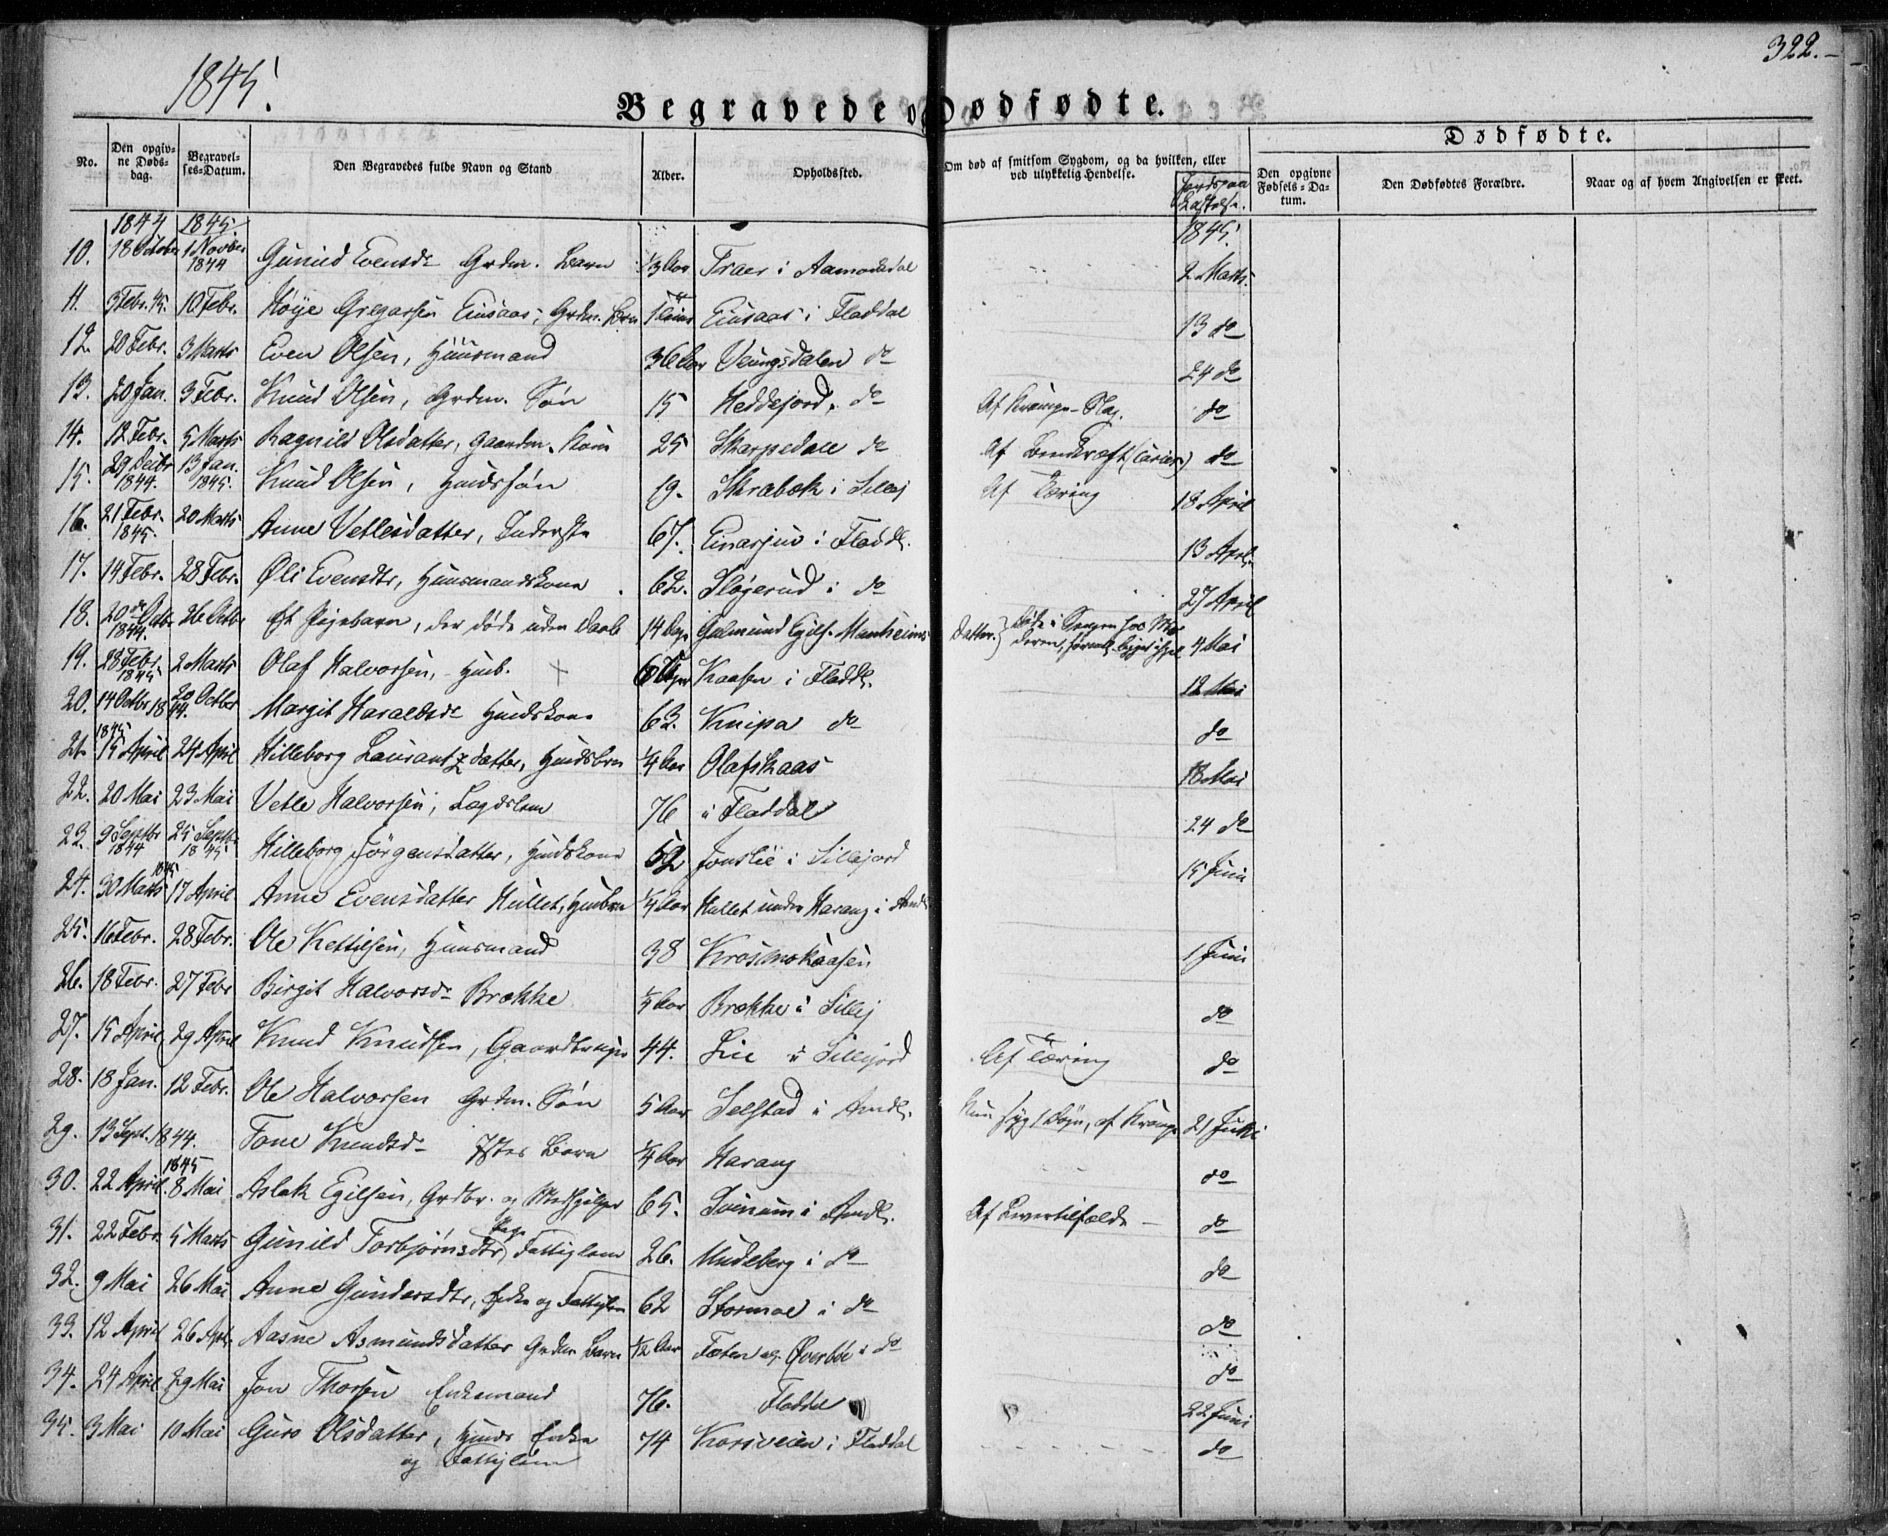 1845.
322.
Begravede og Dødfødte.
Dødfødte.
No.
Den opgivne Dødsdag.
Begravelses-Datum.
Den Begravedes fulde Navn og Stand
Alder.
Opholdssted.
Om død af smitsom Sygdom, og da hvilken, eller ved ulykkelig Hendelse.
Jordspaa Kastelse.
Den opgivne Fødsels-Datum.
Den Dødfødtes Forældre.
Naar og af hvem Angivelsen er skeet.
1844 1845 1845.
10. 18 October 1 Novber 1844 Gunild Evensdr Grdm. Barn 1/3 Aar i Aamotsdal 2 Marts.
11. 3 Febr. 45. 10 Febr. Gregarsen Einsaas, Grdm. Barn Einsaas i Fladdal 13 do
12. 20 Febr. 3 Marts Even Olsen, Huusmand 36 Aar Veungsdalen do 24 do
13. 20 Jan. 3 Febr. Knud Olsen, Grdm. Søn 15 Heddejord. do Af do
14. 12 Febr. 5 Marts Ragnild Olsdatter, Gaardm. Kone 25 Skarpedale do Af do
15. 29 Decbr 1844. 13 Jan. 1845. Knud Olsen, Huusssøn 19. Skrabek i Sillej Af Tæring 18 April
16. 21 Febr. 1845. 20 Marts Anne Vetlesdatter, Inderste 67. Einarsjuv i Fladdl. 13 Apri.
17. 14 Febr. 28 Febr. Øli Evensdtr, Huusmandskone 62. Sløgerud i do 27 April
18. 20de Octbr 1844. 26 Octbr Et Pigebarn, der døde uden Daab 14 Dage Gulmund Egils. Manheims Datter. Døde i Sengen hos Moderen, 4 Mai
19. 28 Febr. 1845 2 Marts Olaf Halvorsen, Husb. Kaasen i Fladdl. 12 Mai
20. 14 Octbr 18 44. 20 Octbr Margit Haraldsdr Huuskone 63. Knipa do do
21. 1845 15 April 24 April Hilleborg Laurantzdatter, Huusbrn 1/4 Aar Olafskaas 18 Mai
22. 20 Mai 23 Mai Vetle Halvorsen, Lægdslem 76 i Fladdal 24 do
23. 9 Septbr 1844 25 Septbr 1845 Hilleborg Jörgensdatter, Huuskone 52 Jonslie i Sillejord 15 Juni
24. 30 Marts 1845 17 April Anne Evensdatter Hullet, Husbrn 1/4 Aar Hullet under Harang i Amdl
25. 16 Febr. 28 Febr. Ole Kettilsen, Huusmand 38 Krosmokaasen 1 Juni
26. 18 Febr. 27 Febr Birgit Halvorsdr Brække Aar Brække i Sillej do
27. 15 April 29 April Knud Knudsen, Gaardbruger 44. Lie i Sillejord Af Tæring do
28. 18 Jan. 12 Febr. Ole Halvorsen Grdm. Søn 5 Aar Selstad i Amdl. syg 1 Døgn, af Krampe 21 Juni
29. 13 Sept. 1844. Tone Knudsdr Barn 1/4 Aar Harang do
30. 22 April 1845 8 Mai Aslak Egilsen, Grdbr. og Medhjelper 65. Svinum i Amdl. do
31. 22 Febr. 5 Marts Gunild Torbjörnsdtr Pige Fattiglem 26. Mudeberg i do do
32. 9 Mai 26 Mai Anne Gundersdtr, Enke og Fattiglem 62 Stormoe i do do
33. 12 April 26 Apl. Aasne Asmundsdatter Grdm. Barn 1/2 Aar Fæten og Øverbøe i do do
34. 24 April 29 Mai Jon Thorsen Enkemand 76. Fladdal do
35. 3 Mai 10 Mai Guro Olsdatter, Huus Enke og Fattiglem 74 Korsveien i Fladdal 22 Juni
do